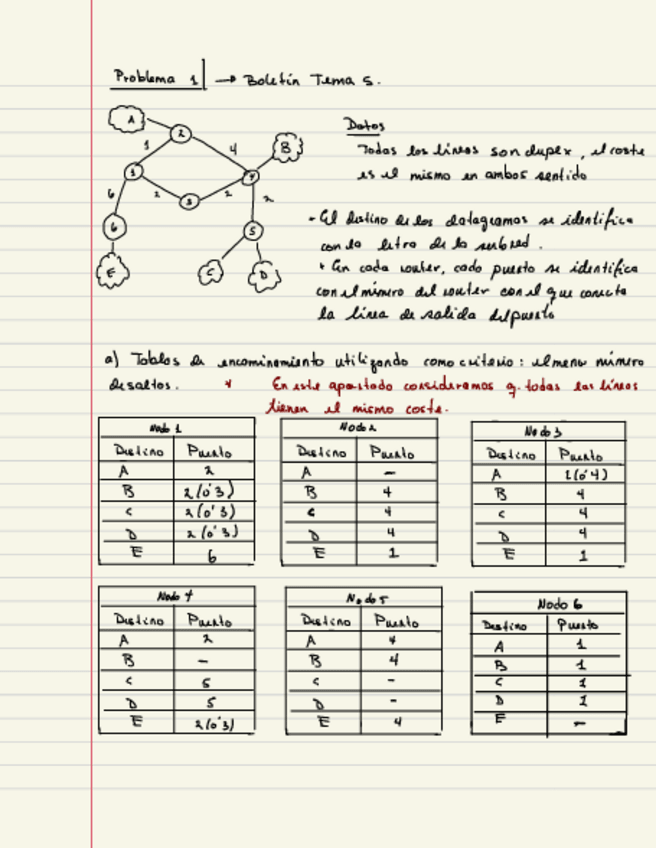 Problema 1 → Boletín Tema 5.
A
2
1
4
B
1
4
6
2
3
2
2
6
5
E
C
D
Datos
Todas las líneas son duplex, el coste
es el mismo en ambos sentido
- El distino de los datagramas se identifica
con la letra de la subred.
• En cada router, cada puerto se identifica
con el número del router con el que conecta
la línea de salida del puerto
a) Tablas de encaminamiento utilizando como criterio: el menor número
de saltos. * En este apartado consideramos q. todas las líneas
tienen el mismo coste.
Nodo 1
Destino Puerto
A 2
B 2(o'3)
C 2(o'3)
D 2(o'3)
E 6
Nodo 2
Destino Puerto
A -
B 4
C 4
D 4
E 1
Nodo 3
Destino Puerto
A 1(o'4)
B 4
C 4
D 4
E 1
Nodo 4
Destino Puerto
A 2
B -
C 5
D 5
E 2(o'3)
Nodo 5
Destino Puerto
A 4
B 4
C -
D -
E 4
Nodo 6
Destino Puerto
A 1
B 1
C 1
D 1
E -